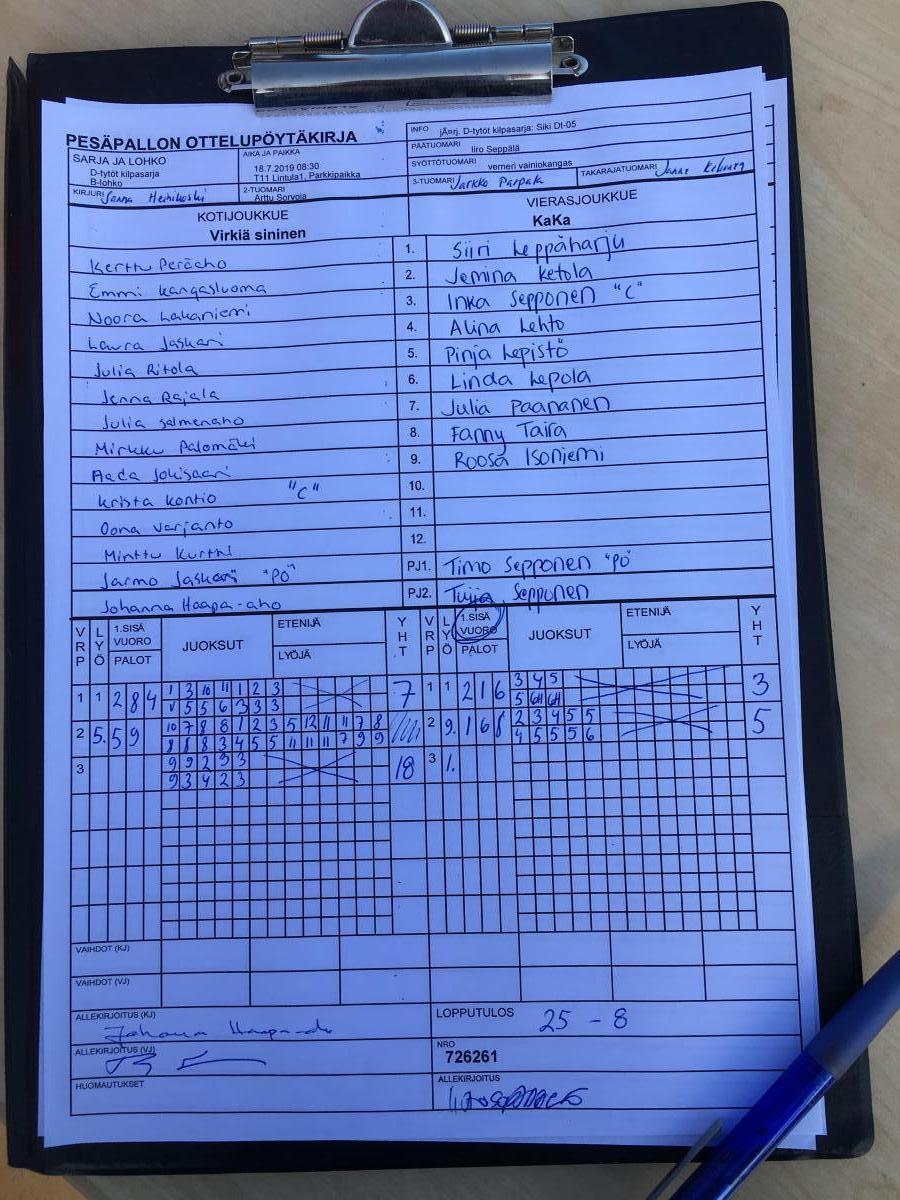 PESÄPALLON OTTELUPÖYTÄKIRJA
SARJA JA LOHKO
D-tytöt kilpasarja
B-lohko
AIKA JA PAIKKA
18.7.2019 08:30
T11 Lintula1, Parkkipaikka
KIRJURI Sanna
2-TUOMARI
Arttu Sorvoja
INFO jÃ¤rj. D-tytöt kilpasarja: Siki Dt-05
PÄÄTUOMARI Iiro Seppälä
SYÖTTÖTUOMARI verneri vainiokangas
3-TUOMARI Jarkko
TAKARAJATUOMARI Janne
KOTIJOUKKUE
Virkiä sininen
VIERASJOUKKUE
KaKa
Kerttu Peräaho 1. Siiri Leppäharju
Emmi Kangasluoma 2. Jemina Ketola
Noora Lakaniemi 3. Inka Sepponen "C"
Laura Jaskari 4. Alina Lehto
Julia Ritola 5. Pinja Lepistö
Jenna Rajala 6. Linda Lepola
Julia Salmenaho 7. Julia Paananen
Mirkku Palomäki 8. Fanny Taira
Aada Jokisaari 9. Roosa Isoniemi
Krista Kontio "C" 10.
Oona Varjanto 11.
Minttu Kurtti 12.
Jarmo Jaskari "PÖ" PJ1. Timo Sepponen "PÖ"
Johanna Haapa-aho PJ2. Tuija Sepponen
VRP LYÖ 1.SISÄ VUORO PALOT JUOKSUT ETENIJÄ LYÖJÄ YHT VRP LYÖ 1.SISÄ VUORO PALOT JUOKSUT ETENIJÄ LYÖJÄ YHT
1 1 2 8 4 1 3 10 11 1 2 3 7 1 1 2 1 6 3 4 5 3
5 5 6 3 3 3 5
2 5. 5 9 10 7 8 8 1 2 3 5 12 11 11 7 8 2 9. 1 6 8 2 3 4 5 5 5
8 8 8 3 4 5 5 11 11 11 7 9 9 4 5 5 5 6
3 9 9 2 3 3 18 3 1.
9 3 4 2 3
VAIHDOT (KJ)
VAIHDOT (VJ)
ALLEKIRJOITUS (KJ) Johanna Haapa-aho
LOPPUTULOS 25 - 8
ALLEKIRJOITUS (VJ)
NRO
726261
HUOMAUTUKSET
ALLEKIRJOITUS